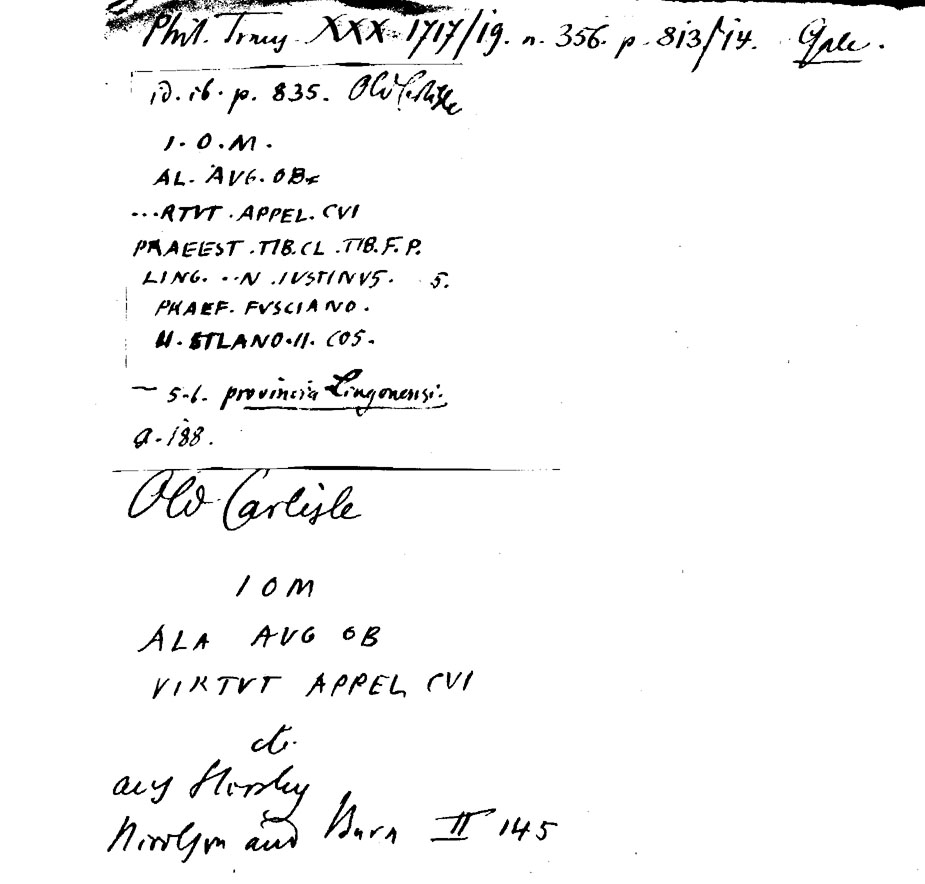 Phil. Trans. XXX 1717/19. n. 356. p. 813/14. Gale.
id. ib. p. 835. Old Carlisle
I. O. M.
AL. AVG. OB
...RTVT . APPEL. CVI
PRAEEST . TIB. CL . TIB. F. P.
LING. ...N . IVSTINVS. 5.
PRAEF. FVSCIANO .
II. SILANO. II. COS.
— 5-6. provincia Lingonensi.
a. 188.
Old Carlisle
I O M
ALA AVG OB
VIRTVT APPEL CVI
etc.
aus Horsley
Nicolson and Burn II 145